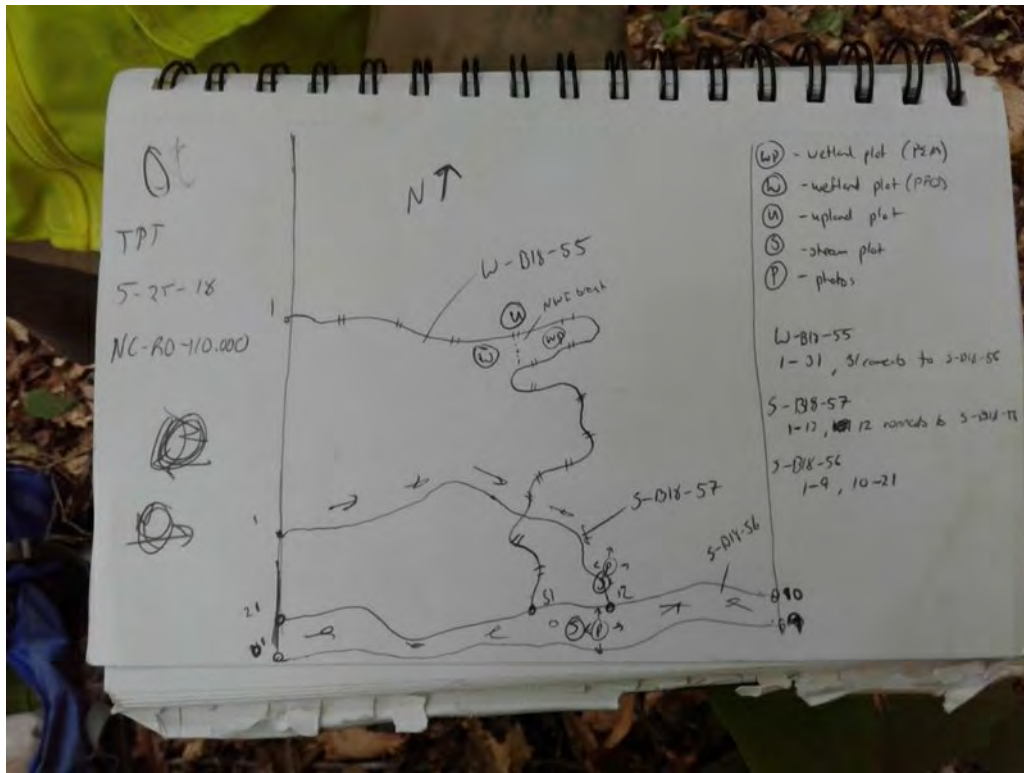 TPT
5-25-18
NC-RO-110.000
N
W-B18-55
NWI break
1
U
W
WP
1
S-B18-57
S-B18-56
P
S
21
31
12
10
S
P
9
WP - wetland plot (PEM)
W - wetland plot (PFO)
U - upland plot
S - stream plot
P - photos
W-B18-55
1-31, 31 connects to S-B18-56
S-B18-57
1-12, 12 connects to
S-B18-56
1-9, 10-21